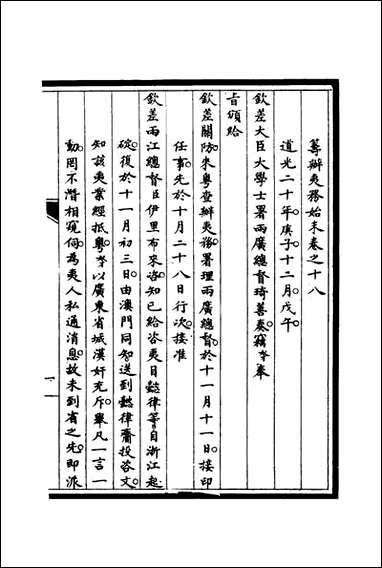 籌辦夷務始末卷之十八
道光二十年。庚子。十二月。戊午。
欽差大臣大學士署兩廣總督琦善奏。竊奴才奉
旨頒給
欽差關防。來粵查辦夷務。署理兩廣總督。於十一月十一日。接印
任事。先於十月二十八日行次。接准
欽差兩江總督臣伊里布來咨。知已給咨夷目懿律等自浙江起
碇。復於十一月初三日。由澳門同知送到懿律齎投咨文。
知該夷業經抵粵。奴才以廣東省城漢奸充斥。舉凡一言一
動。罔不潛相窺伺。為夷人私通消息。故未到省之先。即派